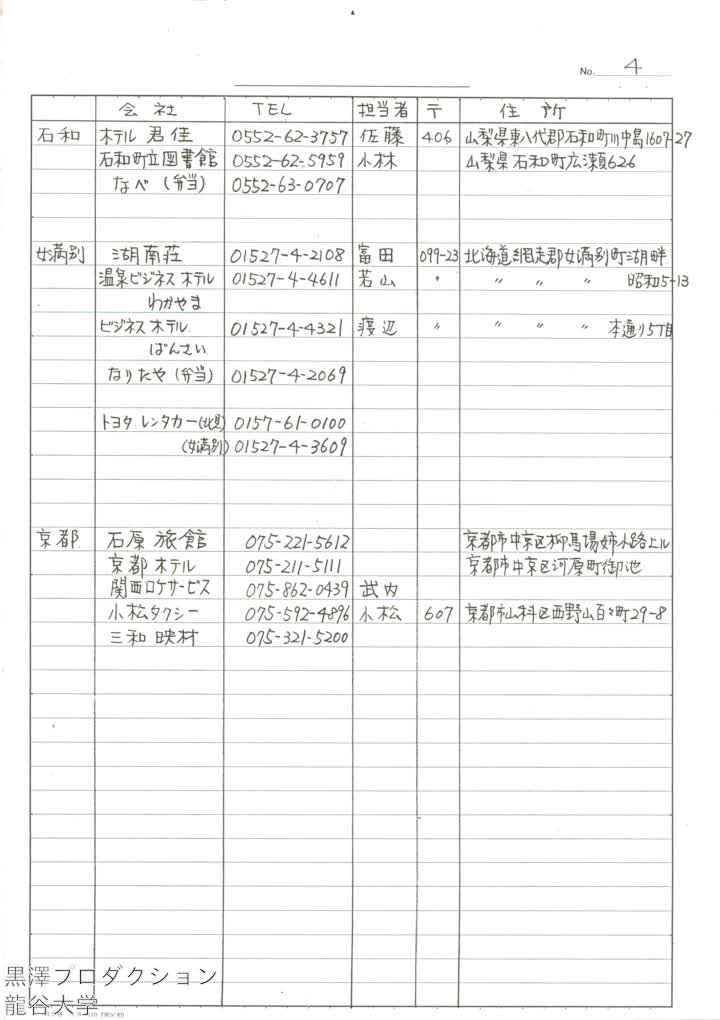 No. 4
会社 TEL 担当者 〒 住所
石和 ホテル 君佳 0552-62-3757 佐藤 406 山梨県東八代郡石和町川中島1607-27
石和町立図書館 0552-62-5959 小林 山梨県石和町広瀬626
なべ (弁当) 0552-63-0707
女満別 湖南荘 01527-4-2108 富田 099-23 北海道網走郡女満別町湖畔
温泉ビジネスホテル 01527-4-4611 若山 〃 〃 〃 〃 昭和5-13
わかやま
ビジネスホテル 01527-4-4321 渡辺 〃 〃 〃 〃 本通り5丁目
ばんさい
なりたや (弁当) 01527-4-2069
トヨタ レンタカー (北見) 0157-61-0100
(女満別) 01527-4-3609
京都 石原 旅館 075-221-5612 京都市中京区柳馬場姉小路上ル
京都 ホテル 075-211-5111 京都市中京区河原町御池
関西ロケサービス 075-862-0439 武内
小松タクシー 075-592-4896 小松 607 京都市山科区西野山百々町29-8
三和 映材 075-321-5200
黒澤プロダクション
龍谷大学